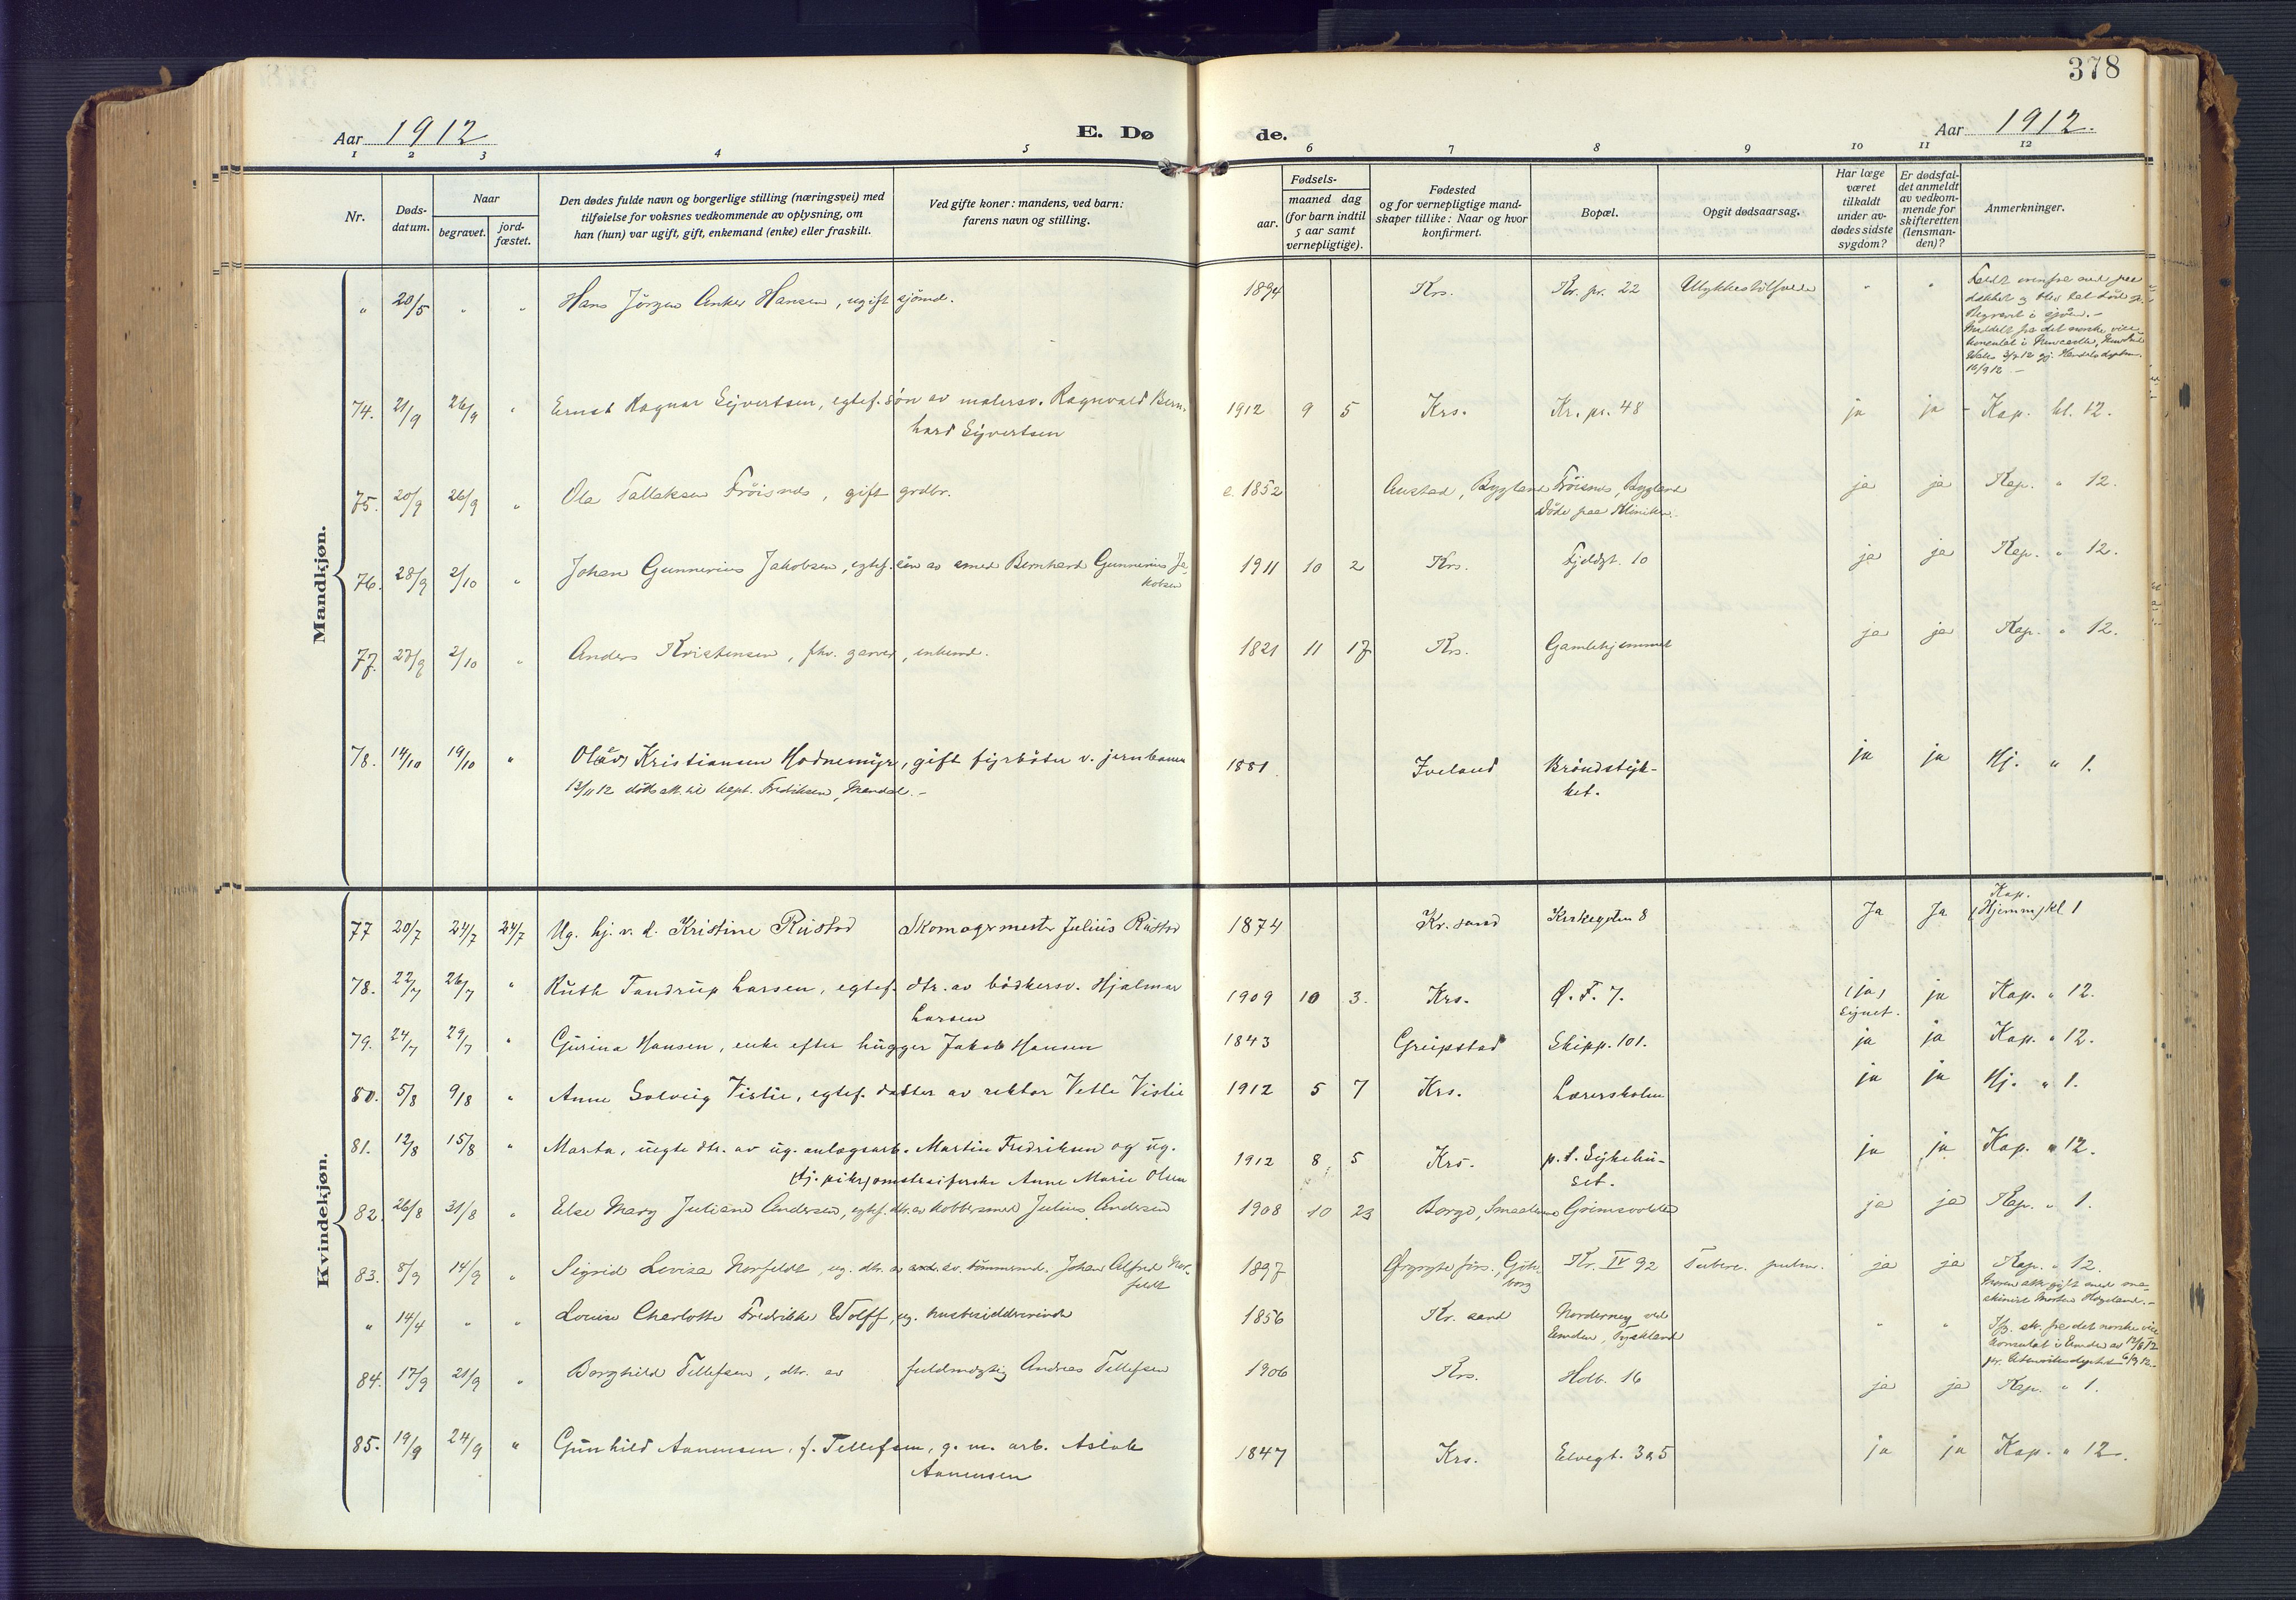 378
Aar 1912
E. Dø
de.
Aar 1912.
1 2 3 4 5 6 7 8 9 10 11 12
Nr.
Døds-
datum.
Naar
begravet.
jord-
fæstet.
Den dødes fulde navn og borgerlige stilling (næringsvei) med
tilføielse for voksnes vedkommende av oplysning, om
han (hun) var ugift, gift, enkemand (enke) eller fraskilt.
Ved gifte koner: mandens, ved barn:
farens navn og stilling.
Fødsels-
aar.
maaned dag
(for barn indtil
5 aar samt
vernepligtige).
Fødested
og for vernepligtige mand-
skaper tillike: Naar og hvor
konfirmert.
Bopæl.
Opgit dødsaarsag.
Har læge
været
tilkaldt
under av-
dødes sidste
sygdom?
Er dødsfal-
det anmeldt
av vedkom-
mende for
skifteretten
(lensman-
den)?
Anmerkninger.
Mandkjøn.
" 20/5 " " Hans Jörgen Anker Hansen, ugift sjömd. 1894 Krs. Kr. pr. 22 Ulykkestilfælde " "
dækket og blev
Begravet i sjöen. –
Meddelt fra det norske vice-
konsulat i Newcastle,
16/9 12 –
74. 21/9 26/9 " Ernst Ragnar Syvertsen, egtef. sön av malersv. Ragnvald Bern- 1912 9 5 Krs. Kr. pr. 48 ja ja Kap. kl. 12.
hard Syvertsen
75. 20/9 26/9 " Ola Tallaksen Fröisnes, gift grdbr. c. 1852 Austad, Bygland Fröisnes, Bygland ja ja Kap. " 12.
Döde paa Kliniken.
76. 28/9 2/10 " Johan Gunnerius Jakobsen, egtef. sön av smed Bernhard Gunnerius Ja- 1911 10 2 Krs. Fjeldgt. 10 ja ja Kap. " 12.
kobsen
77. 27/9 2/10 " Anders Kristensen, fhv. garver, enkemd. 1821 11 17 Krs. Gamlehjemmet ja ja Kap. " 12.
78. 14/10 19/10 " Olav Kristiansen Hodnemyr, gift fyrböter v. jernbanen 1881 Iveland Bröndstyk- ja ja Hj. " 1.
ket.
13/11 12 dödsatt. til kapt. Fredriksen, Mandal. –
Kvindekjøn.
77 20/7 24/7 24/7 Ug. hj. v. d. Kristine Rustad Skomagermester Julius Rustad 1874 Kr. sand Kirkegaten 8 Ja Ja Kap.
(Hjemm) kl 1
78. 22/7 26/7 " Ruth Tandrup Larsen, egtef. dtr. av bödkersv. Hjalmar 1909 10 3. Krs. Ø. F. 7. (ja) ja Kap. " 12.
Larsen
79. 24/7 29/7 " Gurina Hansen, enke efter hugger Jakob Hansen 1843 Greipstad Skipp. 101. ja ja Kap. " 12.
80. 5/8 9/8 " Anne Solveig Vislie, egtef. datter av rektor Vetle Vislie 1912 5 7 Krs. Lærerskolen ja ja Hj. " 1.
81. 12/8 15/8 " Marta, uegte dtr. av ug. anlægsarb. Martin Fredriksen og ug. 1912 8 5 Krs. p. t. Sykehu- ja ja Kap. " 12.
set.
tj. pike, omstreiferske Anne Marie Olsen
82. 26/8 31/8 " Else Mary Juliane Andersen, egtef. dtr. av kobbersmed Julius Andersen 1908 10 23 Borge, Smaalene Grimsvolden ja ja Kap. " 1.
83. 8/9 14/9 " Sigrid Lovisa Norfeldt, ug. dtr. av tömmermd. Johan Alfred Nor- 1897 Ørgryte förs., Göte- Kr. IV 92 Tuberc. pulm. ja ja Kap. " 12.
feldt borg Moren atter gift med ma-
skinist Morten Hægeland. –
" 14/4 " " Louise Charlotte Fredrikke Wolff, ug. husbesidderinde 1856 Kr. sand Norderney ved " "
Emden, Tyskland
skr. fra det norske vice
konsulat i Emden av
84. 17/9 21/9 " Borghild Tellefsen, dtr. av fuldmægtig Andreas Tellefsen 1906 Krs. Holb. 16 ja ja Kap. " 1.
85. 19/9 24/9 " Gunhild Aanensen, f. Tellefsen, g. m. arb. Aslak 1847 Krs. Elvegt. 3a5 ja ja Kap. " 12.
Aanensen